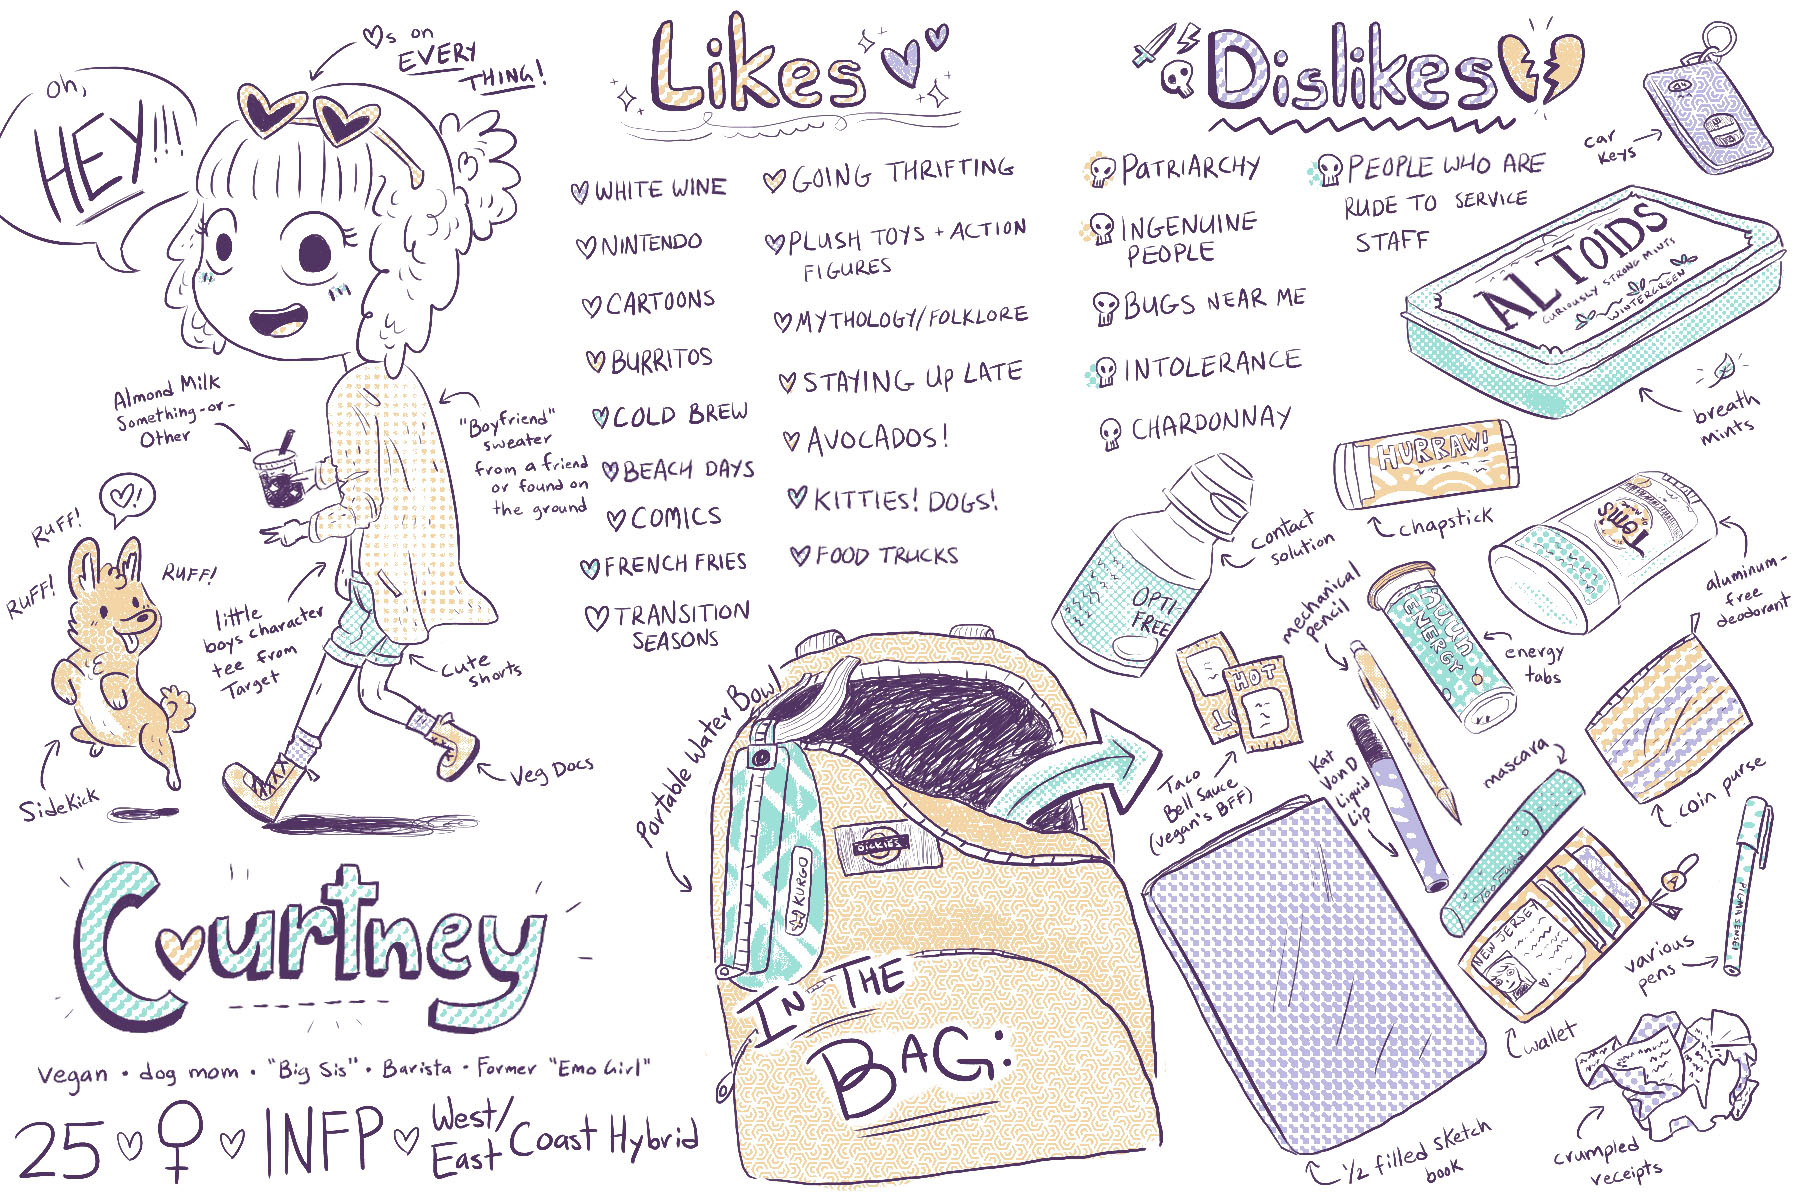 oh,
HEY!!!
♡s on
EVERY
THING!
Almond Milk
Something-or-
Other
"Boyfriend"
sweater
from a friend
or found on
the ground
♡!
RUFF!
RUFF!
RUFF!
little
boys character
tee from
Target
Cute
shorts
Veg Docs
Sidekick
Courtney
vegan • dog mom • "Big Sis" • Barista • Former "Emo Girl"
25 ♡ ♀ ♡ INFP ♡ West/
East Coast Hybrid
Likes
WHITE WINE
NINTENDO
CARTOONS
BURRITOS
COLD BREW
BEACH DAYS
COMICS
FRENCH FRIES
TRANSITION
SEASONS
GOING THRIFTING
PLUSH TOYS + ACTION
FIGURES
MYTHOLOGY/FOLKLORE
STAYING UP LATE
AVOCADOS!
KITTIES! DOGS!
FOOD TRUCKS
Dislikes
PATRIARCHY
INGENUINE
PEOPLE
BUGS NEAR ME
INTOLERANCE
CHARDONNAY
PEOPLE WHO ARE
RUDE TO SERVICE
STAFF
car
keys
ALTOIDS
CURIOUSLY STRONG MINTS
WINTERGREEN
breath
mints
HURRAW!
chapstick
OPTI-
FREE
contact
solution
Tom's
OF MAINE
aluminum-
free
deodorant
mechanical
pencil
nuun
ENERGY
energy
tabs
HOT
Taco
Bell Sauce
(vegan's BFF)
Kat
Von D
Liquid
Lip
mascara
Too Faced
coin purse
NEW JERSEY
wallet
various
pens
crumpled
receipts
1/2 filled sketch
book
Portable Water Bowl
KURGO
DICKIES
IN THE
BAG: